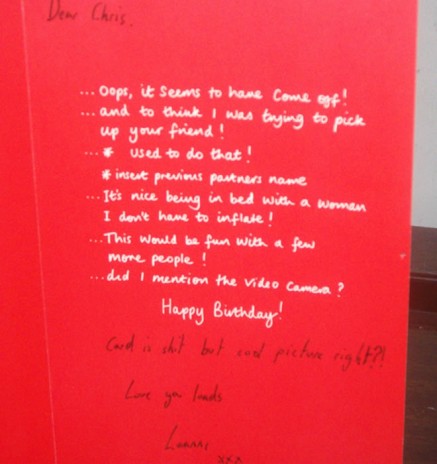 Dear Chris,
... Oops, it seems to have come off!
... and to think I was trying to pick
up your friend!
... * used to do that!
* insert previous partners name
... It's nice being in bed with a woman
I don't have to inflate!
... This would be fun with a few
more people!
... did I mention the video camera?
Happy Birthday!
Card is shit but cool picture right?!
Love you loads
xxx